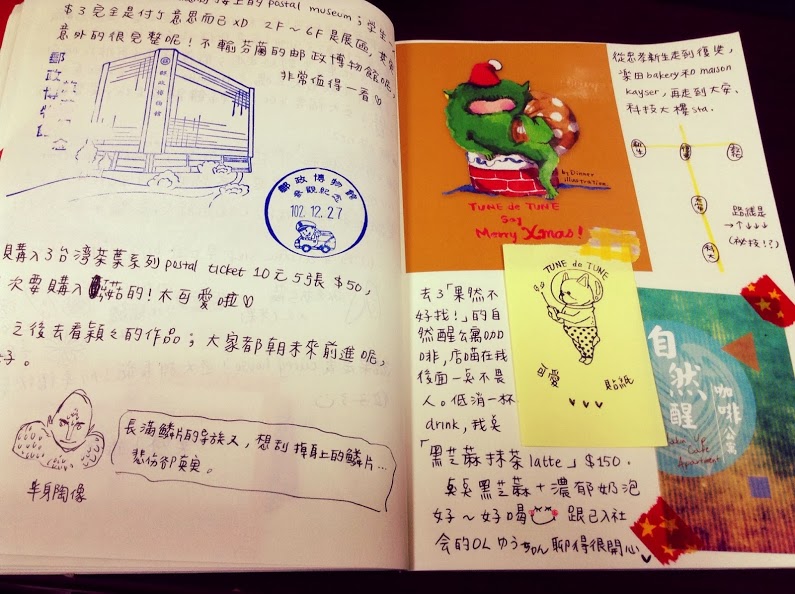 postal museum；學生
$3完全是付個意思而已XD 2F～6F是展區，
意外的很完整呢！不輸芬蘭的郵政博物館呢，
非常值得一看♡
郵政博物館
郵政博物館
郵政博物館
參觀紀念
102.12.27
購入3台湾茶葉系列postal ticket 10元5張 $50，
次要購入菇菇的！太可愛啦♡
之後去看穎穎的作品；大家都朝未來前進呢，
。
長滿鱗片的異族人，想刮掉身上的鱗片…
悲傷卻真實。
半身陶像
by Dinner
illustration
TUNE de TUNE
Say
Merry Xmas!
從忠孝新生走到復興，
樂田bakery和maison
kayser，再走到大安、
科技大樓sta.
新生
復興
大安
科大
路線是
→↑↓↓↓
(秘技!?)
去了「果然不
好找！」的自
然醒公寓咖
啡，店喵在我
後面一點不畏
人。低消一杯
drink，我點
「黑芝麻抹茶latte」$150.
點點黑芝麻＋濃郁奶泡
好～好喝 跟已入社
会的OL ゆうちゃん聊得很開心
TUNE de TUNE
可愛
貼紙
自然醒
咖啡公寓
Wake Up
Cafe
Apartment